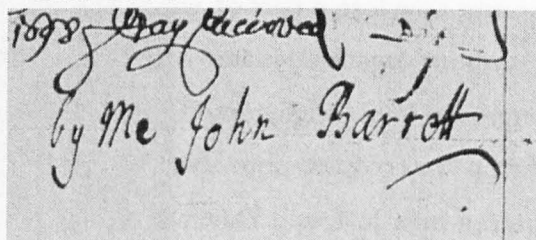 1698 I say Received
by Me John Barrott